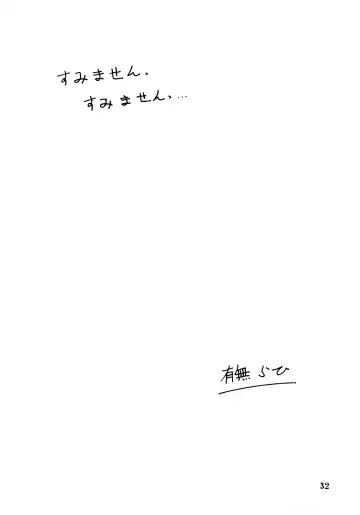 すみません、
すみません、…
有無らひ
32